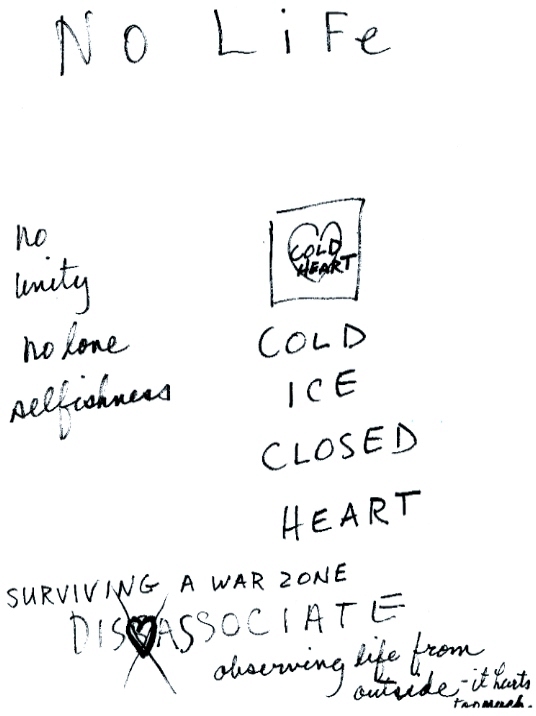 No LiFe
no
unity
no love
selfishness
COLD
HEART
COLD
ICE
CLOSED
HEART
SURVIVING A WAR ZONE
DISASSOCIATE
observing life from
outside - it hurts
too much.